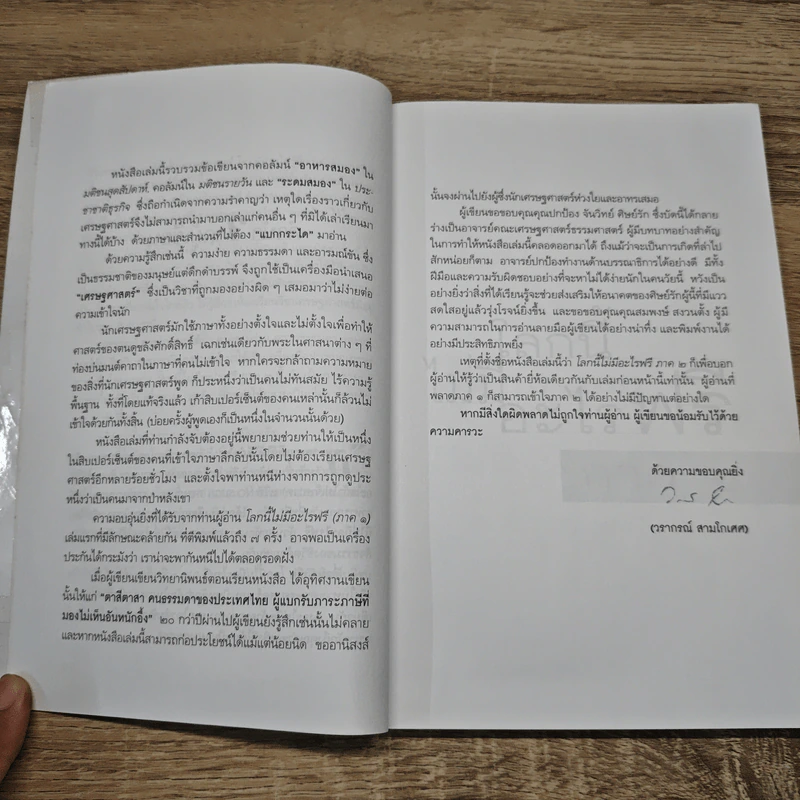 หนังสือเล่มนี้รวบรวมข้อเขียนจากคอลัมน์ "อาหารสมอง" ใน
มติชนสุดสัปดาห์ คอลัมน์ใน มติชนรายวัน และ "ระดมสมอง" ใน ประ-
ชาชาติธุรกิจ ซึ่งถือกำเนิดจากความรำคาญว่า เหตุใดเรื่องราวเกี่ยวกับ
เศรษฐศาสตร์จึงไม่สามารถนำมาบอกเล่าแก่คนอื่น ๆ ที่มิได้เล่าเรียนมา
ทางนี้ได้บ้าง ด้วยภาษาและสำนวนที่ไม่ต้อง "แบกกระได" มาอ่าน
ด้วยความรู้สึกเช่นนี้ ความง่าย ความธรรมดา และอารมณ์ขัน ซึ่ง
เป็นธรรมชาติของมนุษย์แต่ดึกดำบรรพ์ จึงถูกใช้เป็นเครื่องมือนำเสนอ
"เศรษฐศาสตร์" ซึ่งเป็นวิชาที่ถูกมองอย่างผิด ๆ เสมอมาว่าไม่ง่ายต่อ
ความเข้าใจนัก
นักเศรษฐศาสตร์มักใช้ภาษาทั้งอย่างตั้งใจและไม่ตั้งใจเพื่อทำให้
ศาสตร์ของตนดูขลังศักดิ์สิทธิ์ เฉกเช่นเดียวกับพระในศาสนาต่าง ๆ ที่
ท่องบ่นมนต์คาถาในภาษาที่คนไม่เข้าใจ หากใครจะกล้าถามความหมาย
ของสิ่งที่นักเศรษฐศาสตร์พูด ก็ประหนึ่งว่าเป็นคนไม่ทันสมัย ไร้ความรู้
พื้นฐาน ทั้งที่โดยแท้จริงแล้ว เก้าสิบเปอร์เซ็นต์ของคนเหล่านั้นก็ล้วนไม่
เข้าใจด้วยกันทั้งสิ้น (บ่อยครั้งผู้พูดเองก็เป็นหนึ่งในจำนวนนั้นด้วย)
หนังสือเล่มที่ท่านกำลังจับต้องอยู่นี้พยายามช่วยท่านให้เป็นหนึ่ง
ในสิบเปอร์เซ็นต์ของคนที่เข้าใจภาษาลึกลับนั้นโดยไม่ต้องเรียนเศรษฐ
ศาสตร์อีกหลายร้อยชั่วโมง และตั้งใจพาท่านหนีห่างจากการถูกดูประ
หนึ่งว่าเป็นคนมาจากป่าหลังเขา
ความอบอุ่นยิ่งที่ได้รับจากท่านผู้อ่าน โลกนี้ไม่มีอะไรฟรี (ภาค ๑)
เล่มแรกที่มีลักษณะคล้ายกัน ที่ตีพิมพ์แล้วถึง ๗ ครั้ง อาจพอเป็นเครื่อง
ประกันได้กระมังว่า เราน่าจะพากันหนีไปได้ตลอดรอดฝั่ง
เมื่อผู้เขียนเขียนวิทยานิพนธ์ตอนเรียนหนังสือ ได้อุทิศงานเขียน
นั้นให้แก่ "ตาสีตาสา คนธรรมดาของประเทศไทย ผู้แบกรับภาระภาษีที่
มองไม่เห็นอันหนักอึ้ง" ๒๐ กว่าปีผ่านไปผู้เขียนยังรู้สึกเช่นนั้นไม่คลาย
และหากหนังสือเล่มนี้สามารถก่อประโยชน์ได้แม้แต่น้อยนิด ขออานิสงส์
นั้นจงผ่านไปยังผู้ซึ่งนักเศรษฐศาสตร์ห่วงใยและอาทรเสมอ
ผู้เขียนขอขอบคุณคุณปกป้อง จันวิทย์ ศิษย์รัก ซึ่งบัดนี้ได้กลาย
ร่างเป็นอาจารย์คณะเศรษฐศาสตร์ธรรมศาสตร์ ผู้มีบทบาทอย่างสำคัญ
ในการทำให้หนังสือเล่มนี้คลอดออกมาได้ ถึงแม้ว่าจะเป็นการเกิดที่ล่าไป
สักหน่อยก็ตาม อาจารย์ปกป้องทำงานด้านบรรณาธิการได้อย่างดี มีทั้ง
ฝีมือและความรับผิดชอบอย่างที่จะหาไม่ได้ง่ายนักในคนวัยนี้ หวังเป็น
อย่างยิ่งว่าสิ่งที่ได้เรียนรู้จะช่วยส่งเสริมให้อนาคตของศิษย์รักผู้นี้ที่มีแวว
สดใสอยู่แล้วรุ่งโรจน์ยิ่งขึ้น และขอขอบคุณคุณสมพงษ์ สงวนตั้ง ผู้มี
ความสามารถในการอ่านลายมือผู้เขียนได้อย่างน่าทึ่ง และพิมพ์งานได้
อย่างมีประสิทธิภาพยิ่ง
เหตุที่ตั้งชื่อหนังสือเล่มนี้ว่า โลกนี้ไม่มีอะไรฟรี ภาค ๒ ก็เพื่อบอก
ผู้อ่านให้รู้ว่าเป็นสินค้ายี่ห้อเดียวกันกับเล่มก่อนหน้านี้เท่านั้น ผู้อ่านที่
พลาดภาค ๑ ก็สามารถเข้าใจภาค ๒ ได้อย่างไม่มีปัญหาแต่อย่างใด
หากมีสิ่งใดผิดพลาดไม่ถูกใจท่านผู้อ่าน ผู้เขียนขอน้อมรับไว้ด้วย
ความคารวะ
ด้วยความขอบคุณยิ่ง
(วรากรณ์ สามโกเศศ)